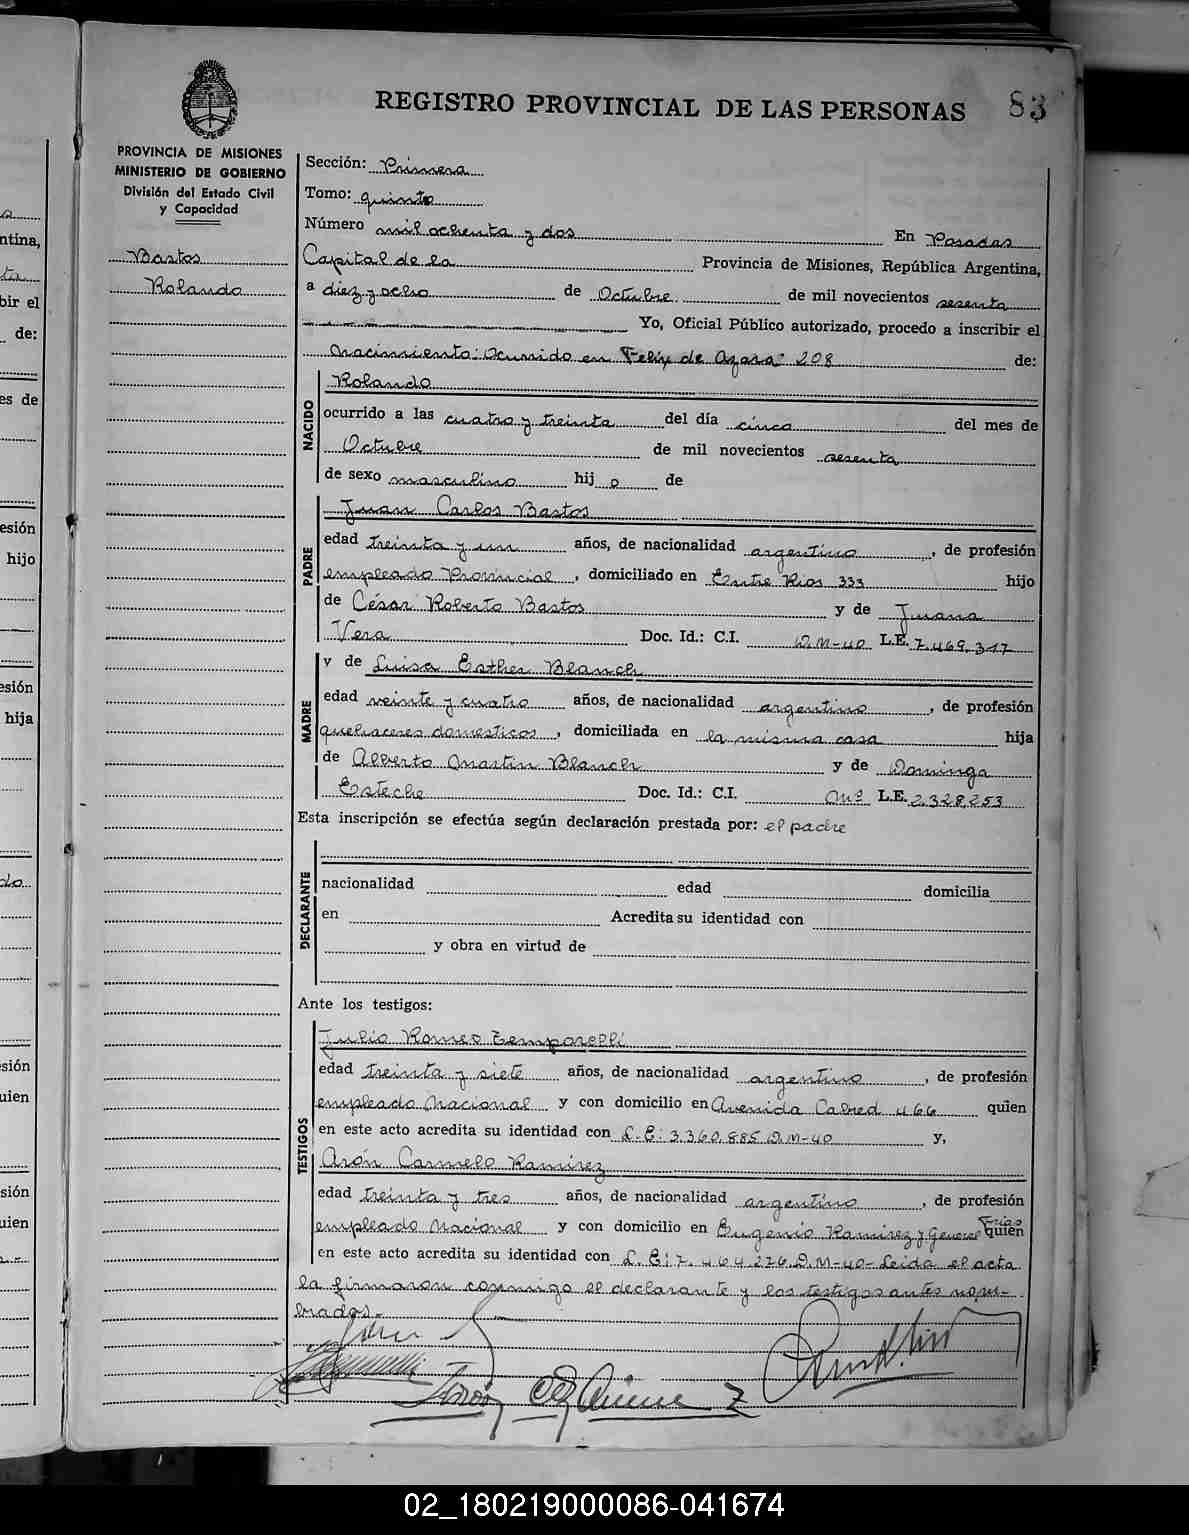 REGISTRO PROVINCIAL DE LAS PERSONAS 83
PROVINCIA DE MISIONES
MINISTERIO DE GOBIERNO
División del Estado Civil
y Capacidad
Bastos
Rolando
Sección: Primera
Tomo: quinto
Número mil ochenta y dos En Posadas
Capital de la Provincia de Misiones, República Argentina,
a diez y ocho de Octubre de mil novecientos sesenta
Yo, Oficial Público autorizado, procedo a inscribir el
nacimiento: ocurrido en Felix de Azara: 208 de:
NACIDO
Rolando
ocurrido a las cuatro y treinta del día cinco del mes de
Octubre de mil novecientos sesenta
de sexo masculino hij o de
PADRE
Juan Carlos Bastos
edad treinta y un años, de nacionalidad argentino, de profesión
empleado Provincial, domiciliado en Entre Rios 333 hijo
de César Roberto Bastos y de Juana
Vera Doc. Id.: C.I. D.M-40 L.E. 7.469.317
MADRE
y de Luisa Esther Blanch
edad veinte y cuatro años, de nacionalidad argentino, de profesión
quehaceres domesticos, domiciliada en la misma casa hija
de Alberto Martin Blanch y de Dominga
Esteche Doc. Id.: C.I. Nº L.E. 2.328.253
Esta inscripción se efectúa según declaración prestada por: el padre
DECLARANTE
nacionalidad edad domicilia
en Acredita su identidad con
y obra en virtud de
Ante los testigos:
TESTIGOS
Julio Romeo Temporelli
edad treinta y siete años, de nacionalidad argentino, de profesión
empleado Nacional y con domicilio en Avenida Cabred 466 quien
en este acto acredita su identidad con L.E: 3.360.885 D.M-40 y,
Arón Carmelo Ramirez
edad treinta y tres años, de nacionalidad argentino, de profesión
empleado Nacional y con domicilio en Eugenio Ramirez y General Frias quien
en este acto acredita su identidad con L.E: 7.464.276.D.M-40- Leida el acta
la firmaron conmigo el declarante y los testigos antes nom-
brados.-
02_180219000086-041674